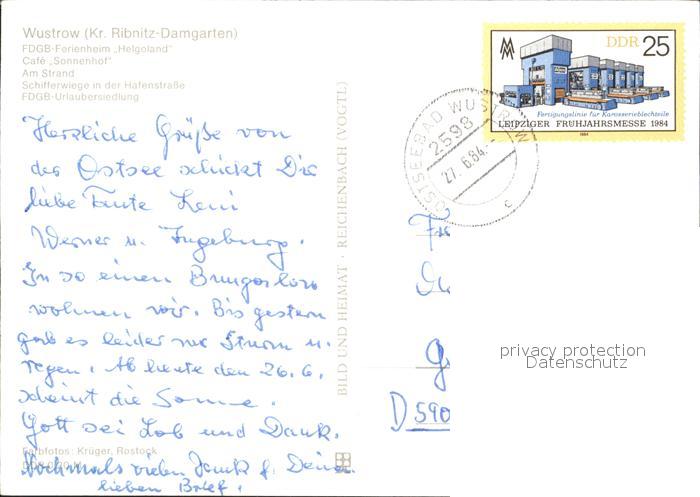 Wustrow (Kr. Ribnitz-Damgarten)
FDGB-Ferienheim „Helgoland"
Café „Sonnenhof"
Am Strand
Schifferwiege in der Hafenstraße
FDGB-Urlaubersiedlung
Herzliche Grüße von
der Ostsee schickt Dir
liebe Tante Leni
Werner u. Ingeburg.
In so einen Bungalow
wohnen wir. Bis gestern
gab es leider nur Sturm u.
regen. Ab heute den 26.6.
scheint die Sonne.
Gott sei Lob und Dank.
Nochmals vielen Dank f. Deinen
lieben Brief.
Farbfotos: Krüger, Rostock
BILD UND HEIMAT · REICHENBACH (VOGTL)
DDR 25
Fertigungslinie für Karosserieblechteile
LEIPZIGER FRÜHJAHRSMESSE 1984
1984
OSTSEEBAD WUSTROW
2598
27.6.84
c
Fr
G
D 590
privacy protection
Datenschutz